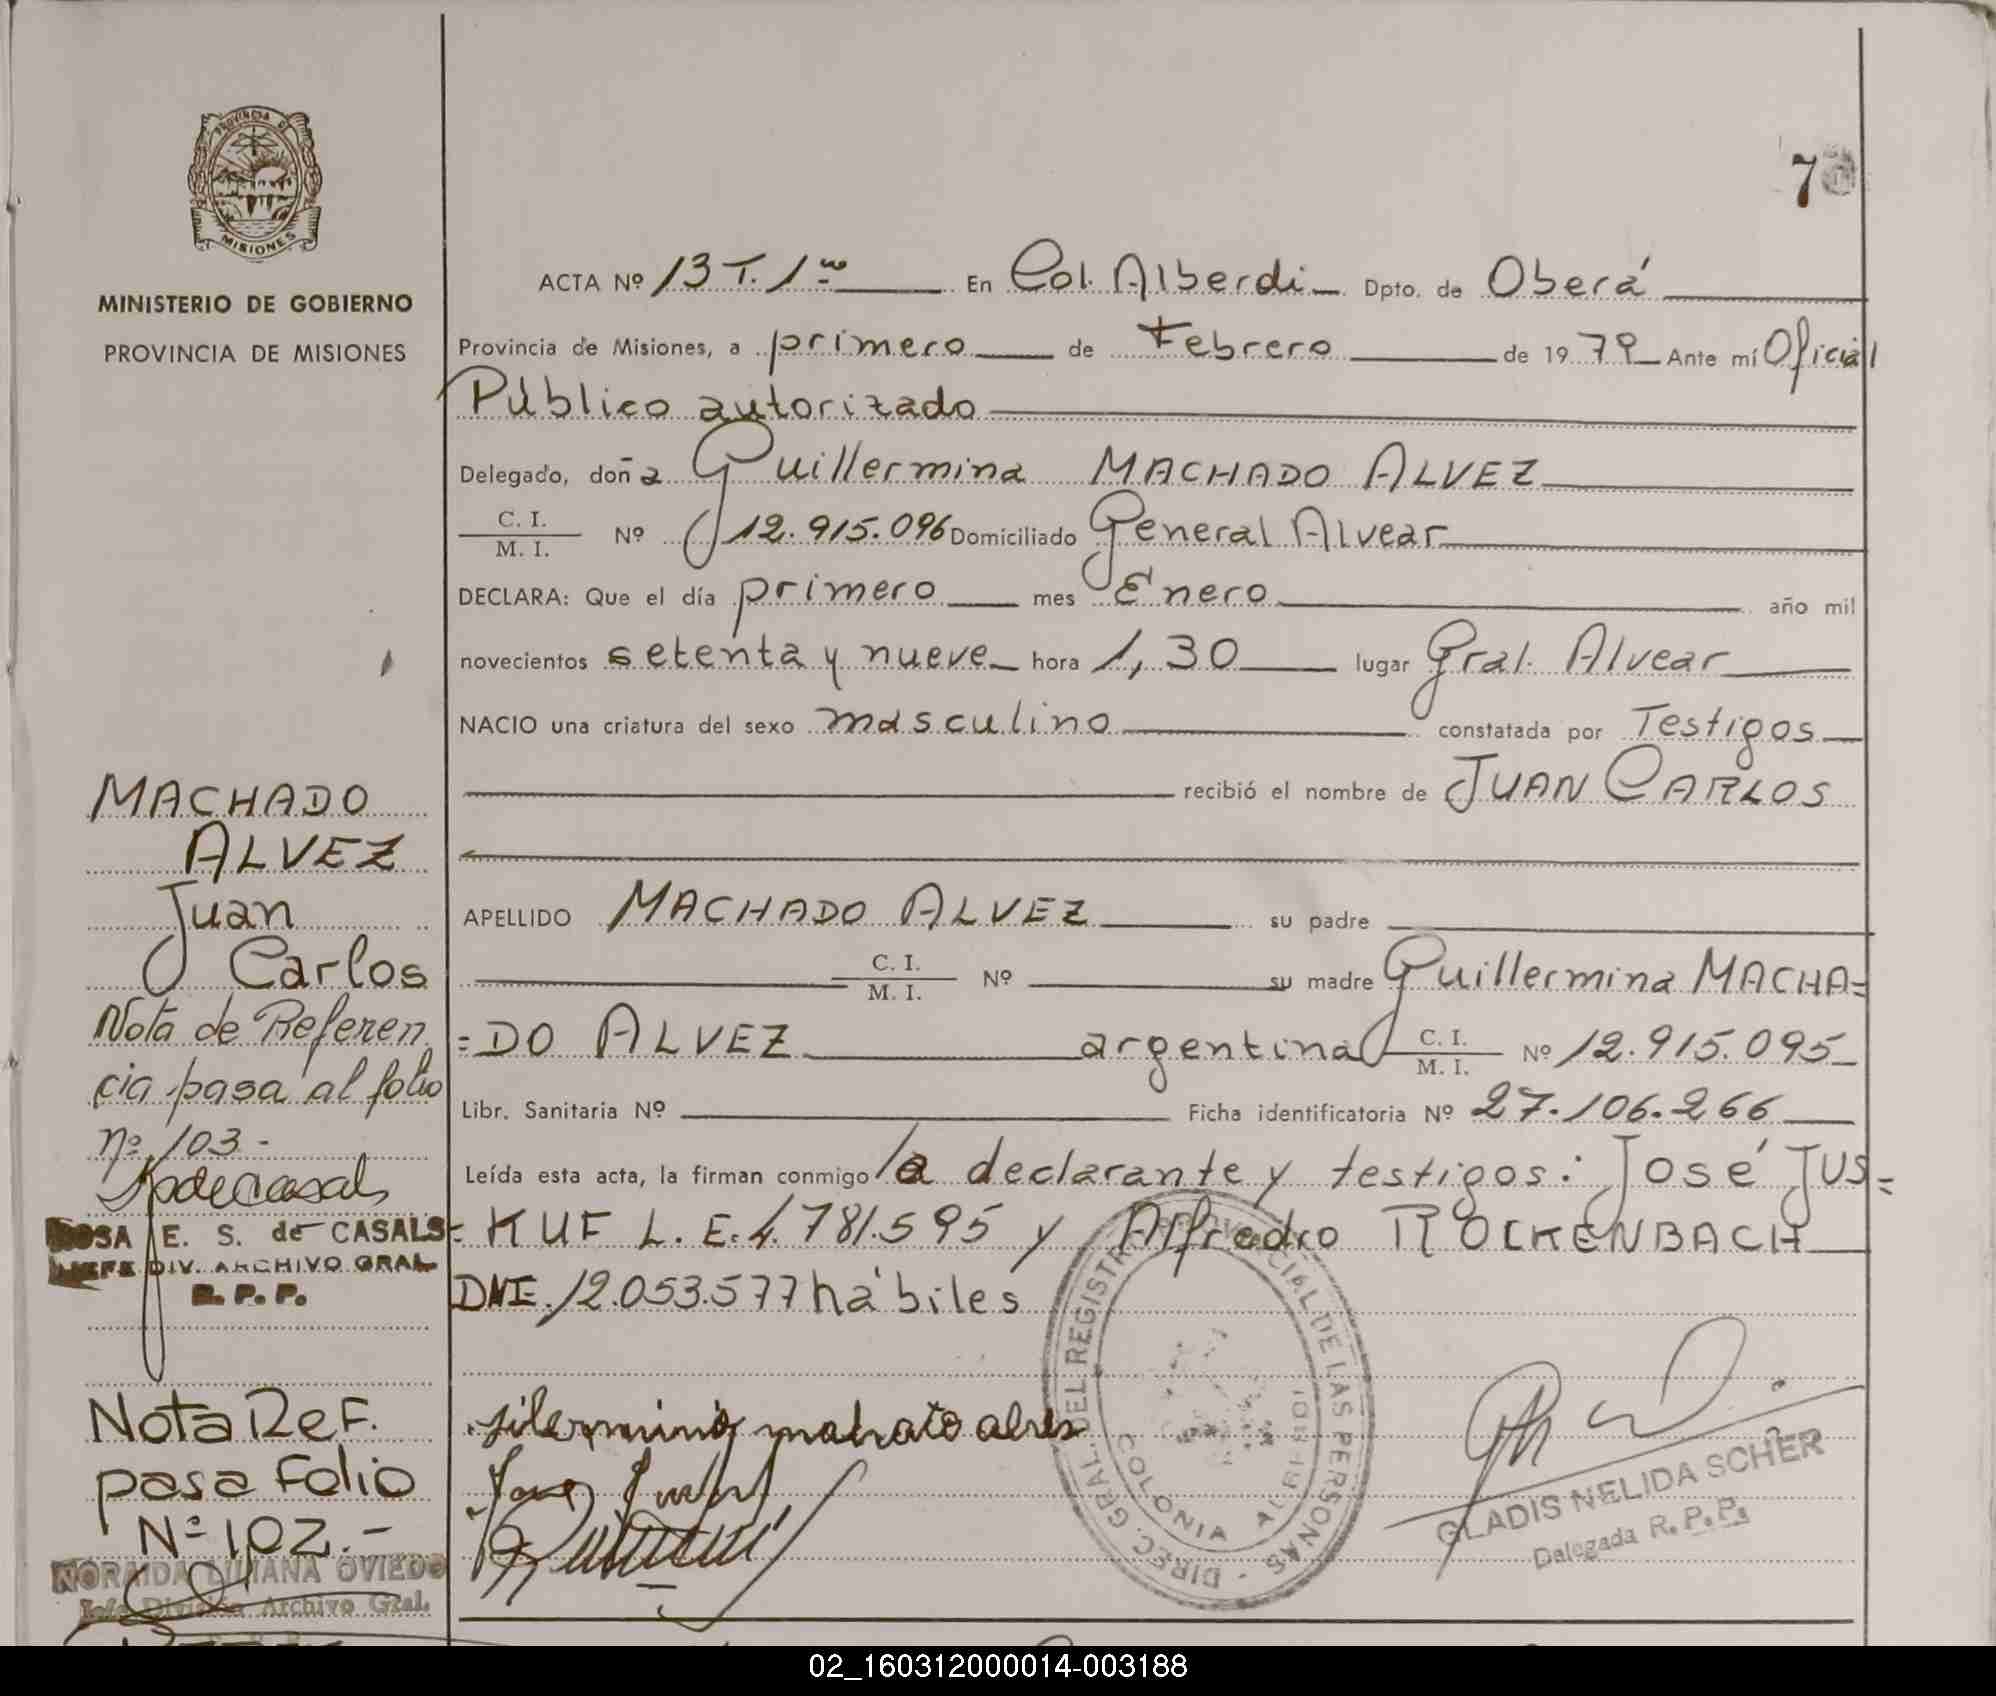 PROVINCIA DE
MISIONES
MINISTERIO DE GOBIERNO
PROVINCIA DE MISIONES
7
ACTA Nº 13 T. 1ro En Col. Alberdi Dpto. de Oberá
Provincia de Misiones, a primero de Febrero de 1979 Ante mí Oficial
Público autorizado
Delegado, doña Guillermina MACHADO ALVEZ
C. I.
M. I. Nº 12.915.096 Domiciliado General Alvear
DECLARA: Que el día primero mes Enero año mil
novecientos setenta y nueve hora 1,30 lugar Gral. Alvear
NACIO una criatura del sexo masculino constatada por Testigos
recibió el nombre de JUAN CARLOS
APELLIDO MACHADO ALVEZ su padre
C. I.
M. I. Nº su madre Guillermina MACHA=
=DO ALVEZ argentina C. I.
M. I. Nº 12.915.095
Libr. Sanitaria Nº Ficha identificatoria Nº 27.106.266
Leída esta acta, la firman conmigo la declarante y testigos: José JUS=
=KUF L. E. 4.781.595 y Alfredro ROCKENBACH
DNI. 12.053.577 hábiles
MACHADO
ALVEZ
Juan
Carlos
Nota de Referen
cia pasa al folio
nº 103-
ROSA E. S. de CASALS
JEFE DIV. ARCHIVO GRAL
R. P. P.
Nota Ref.
pasa Folio
Nº 102.-
NORAIDA LILIANA OVIEDO
Jefe División Archivo Gral.
DIREC. GRAL. DEL REGISTRO PROVINCIAL DE LAS PERSONAS
COLONIA ALBERDI
GLADIS NELIDA SCHER
Delegada R. P. P.
02_160312000014-003188